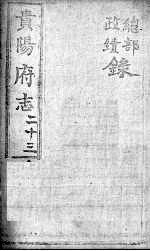 總部
政績錄
貴陽府志二十三